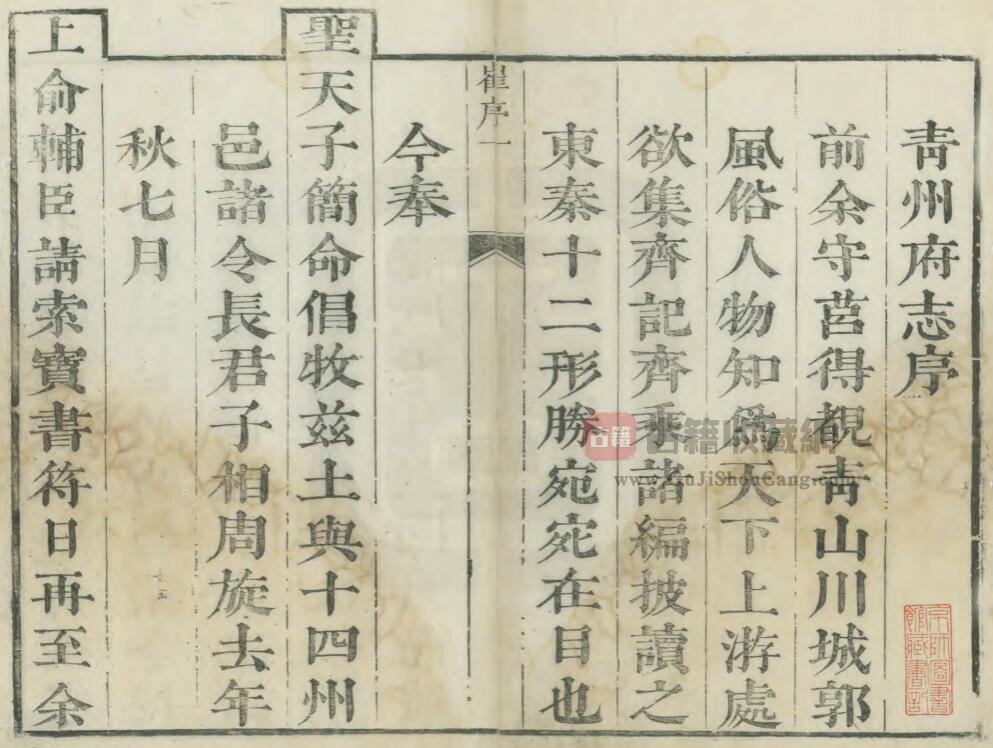 青州府志序
前余守莒得覩青山川城郭
風俗人物知為天下上游處
欲集齊記齊乘諸編披讀之
東秦十二形勝宛宛在目也
今奉
崔序一
聖天子簡命倡牧兹土與十四州
邑諸令長君子相周旋去年
秋七月
上俞輔臣請索寶書符日再至余
京師圖書
館藏書記
古籍
古籍收藏網
www.GuJiShouCang.com